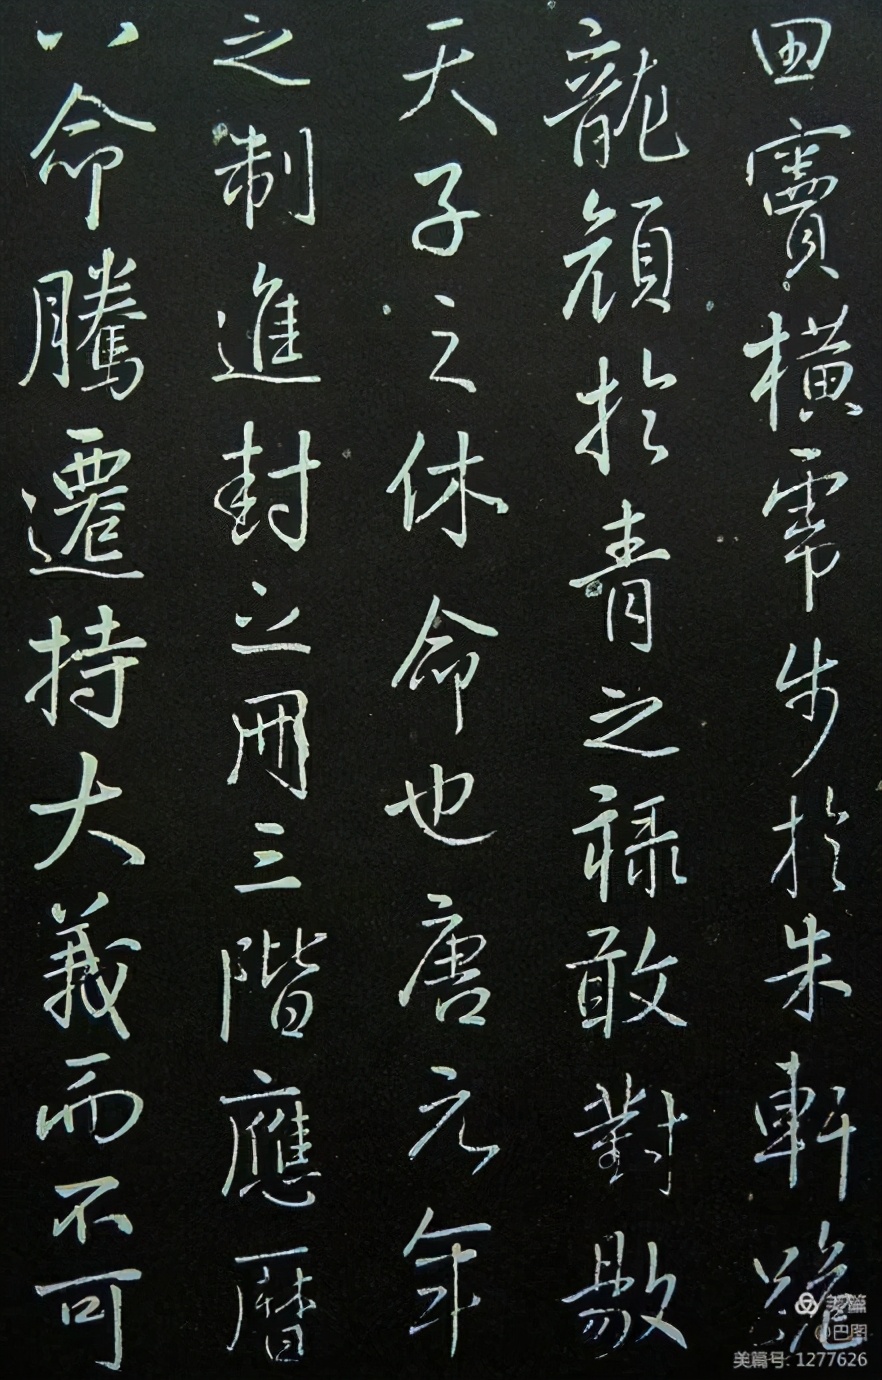 田竇橫步於朱軒
龍顏於青之祿敢對敭
天子之休命也唐元年
之制進封之冊三階應曆
八命騰遷持大義而不可
美篇
@巴图
美篇号: 1277626